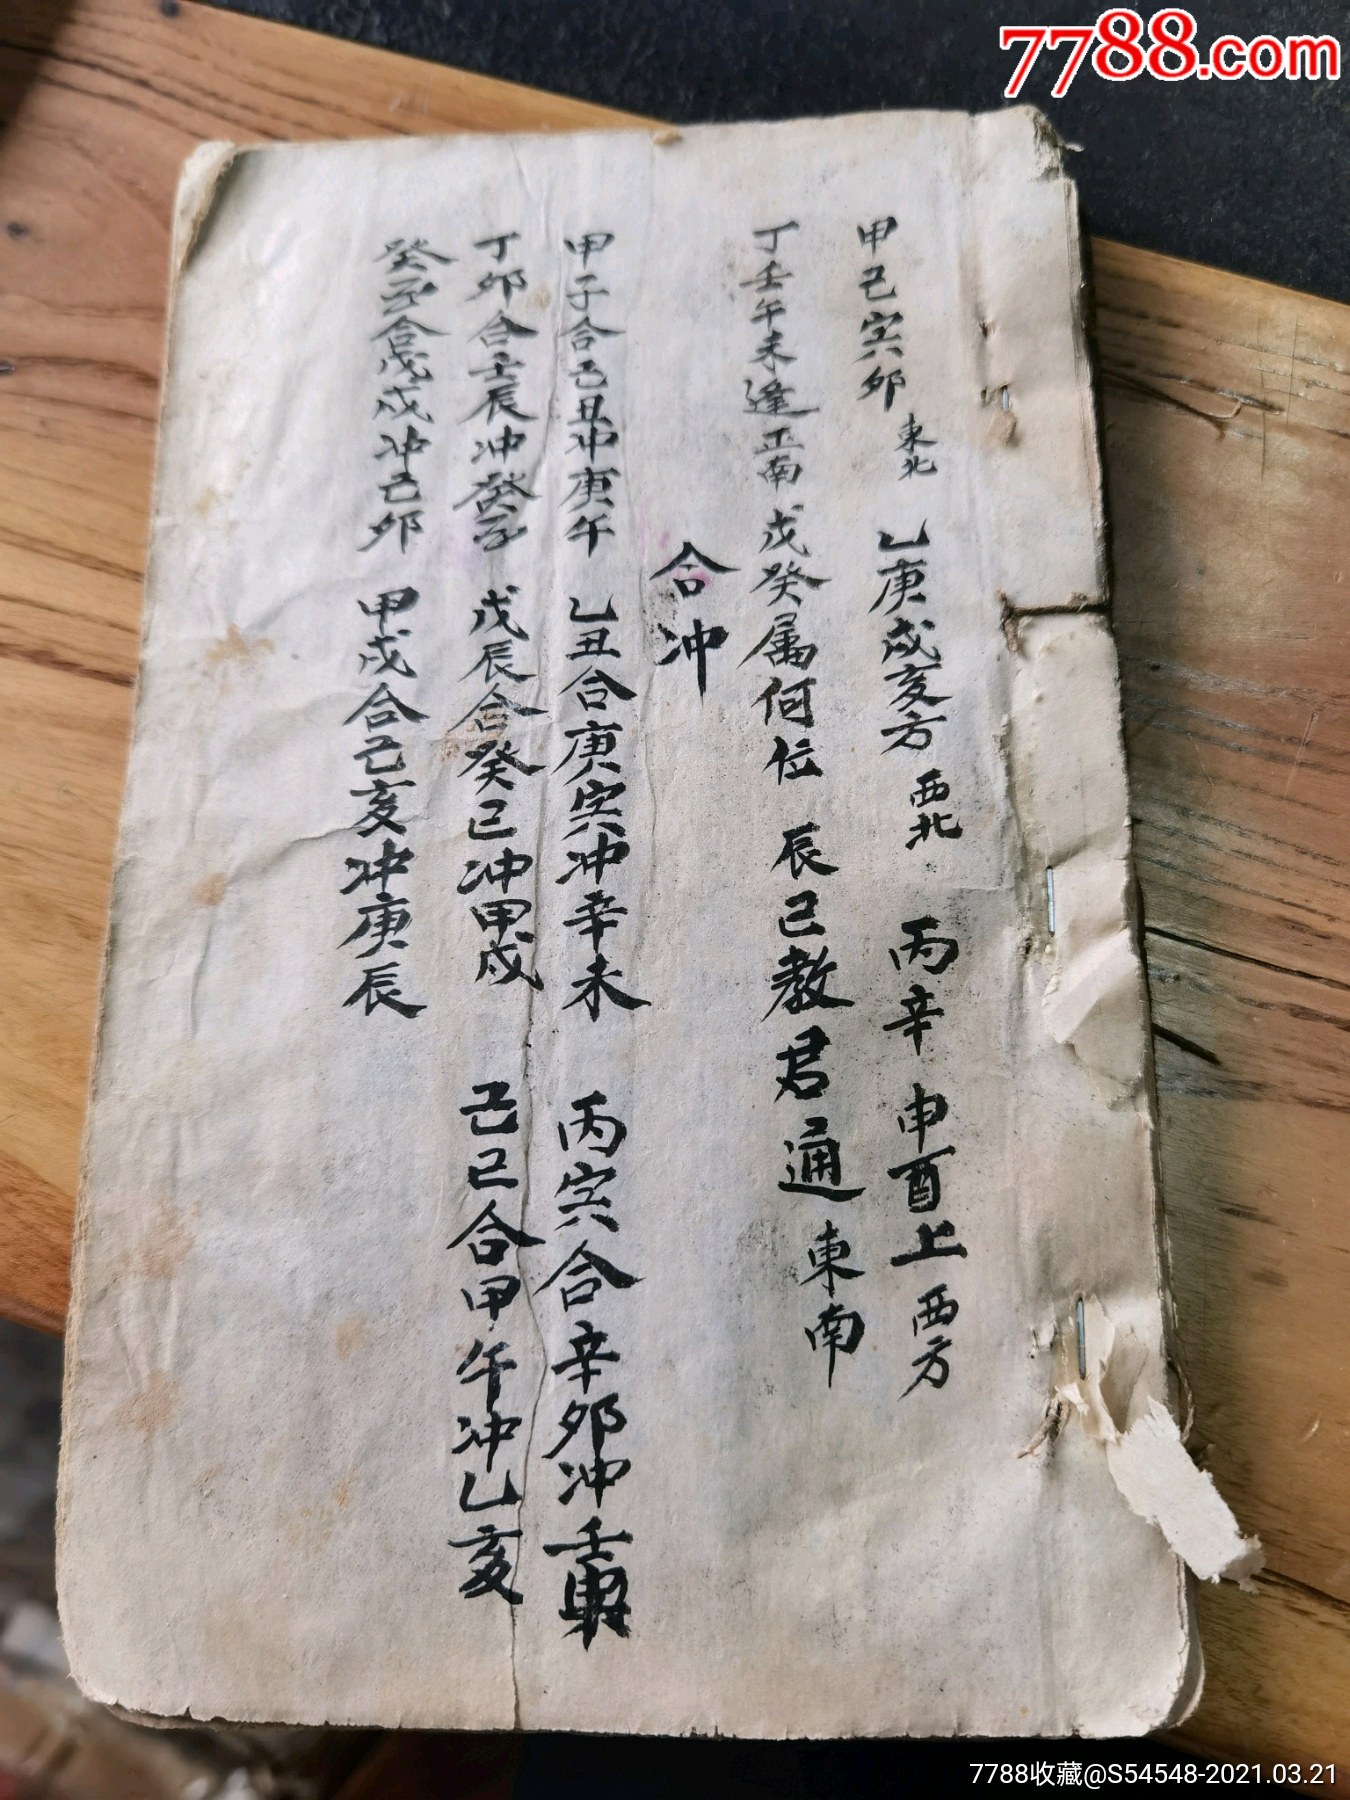 7788.com
甲己寅卯 東北 乙庚戌亥方 西北 丙辛申酉上 西方
丁壬午未逢正南 戊癸属何位 辰巳教君通 東南
合冲
甲子合己丑冲庚午 乙丑合庚寅冲辛未 丙寅合辛卯冲壬
丁卯合壬辰冲癸 戊辰合癸巳冲甲戌 己巳合甲午冲乙亥
癸合戊戌冲己卯 甲戌合己亥冲庚辰
7788收藏@S54548-2021.03.21